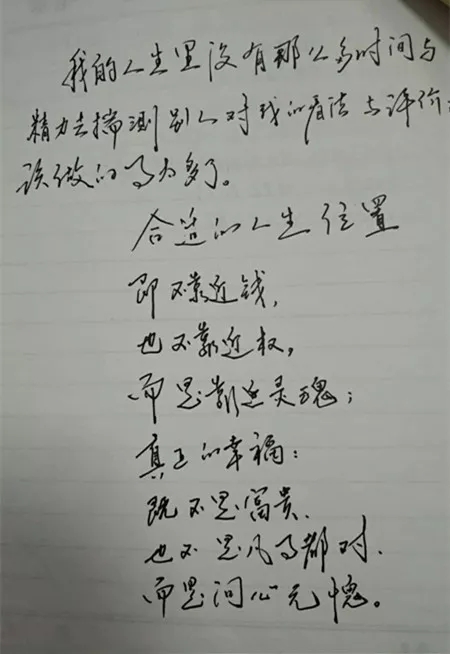 我的人生里没有那么多时间与
精力去揣测别人对我的看法与评价:
该做的事太多了。
合适的人生位置
即不靠近钱,
也不靠近权,
而是靠近灵魂;
真正的幸福:
既不是富贵、
也不是凡事都对、
而是问心无愧。